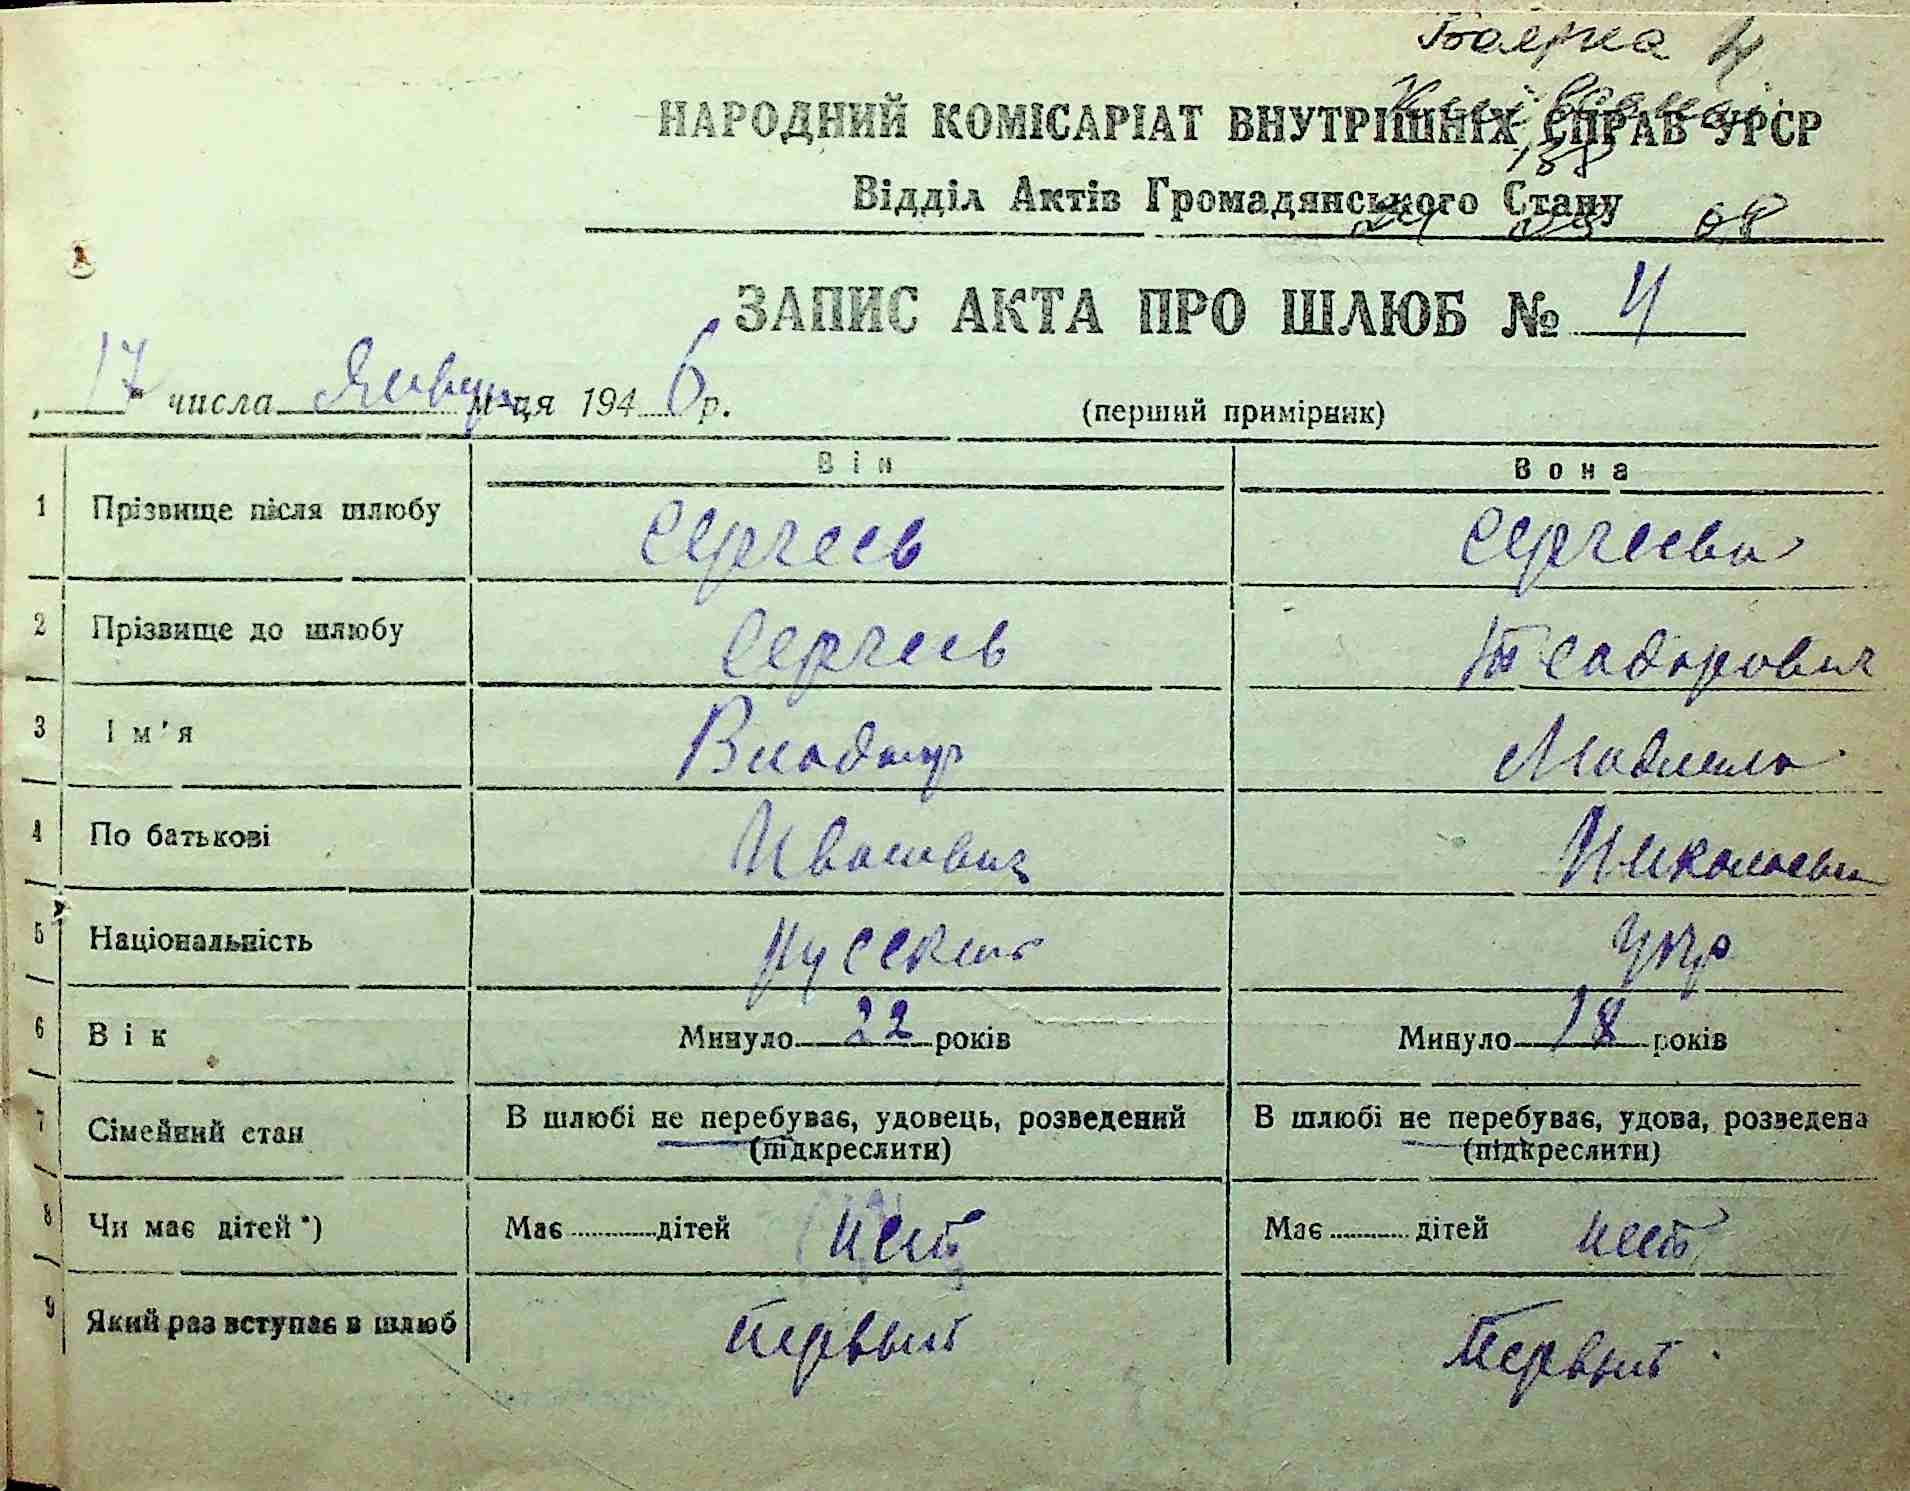 Боярка
НАРОДНИЙ КОМІСАРІАТ ВНУТРІШНІХ СПРАВ УРСР
Відділ Актів Громадянського Стану
08
ЗАПИС АКТА ПРО ШЛЮБ № 4
„17" числа Январ м-ця 1946 р. (перший примірник)
Він Вона
1 Прізвище після шлюбу Сергеев Сергеева
2 Прізвище до шлюбу Сергеев Теодорович
3 Ім'я Владимир Людмила
4 По батькові Иванович Николаевн
5 Національність русский Укр
6 Вік Минуло 22 років Минуло 18 років
7 Сімейний стан В шлюбі не перебуває, удовець, розведений (підкреслити) В шлюбі не перебуває, удова, розведена (підкреслити)
8 Чи має дітей *) Має дітей нет Має дітей нет
9 Який раз вступає в шлюб первый Первый